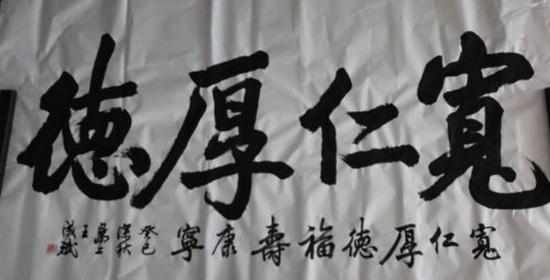 寬仁厚德
寬仁厚德福壽康寧
癸巳
深秋